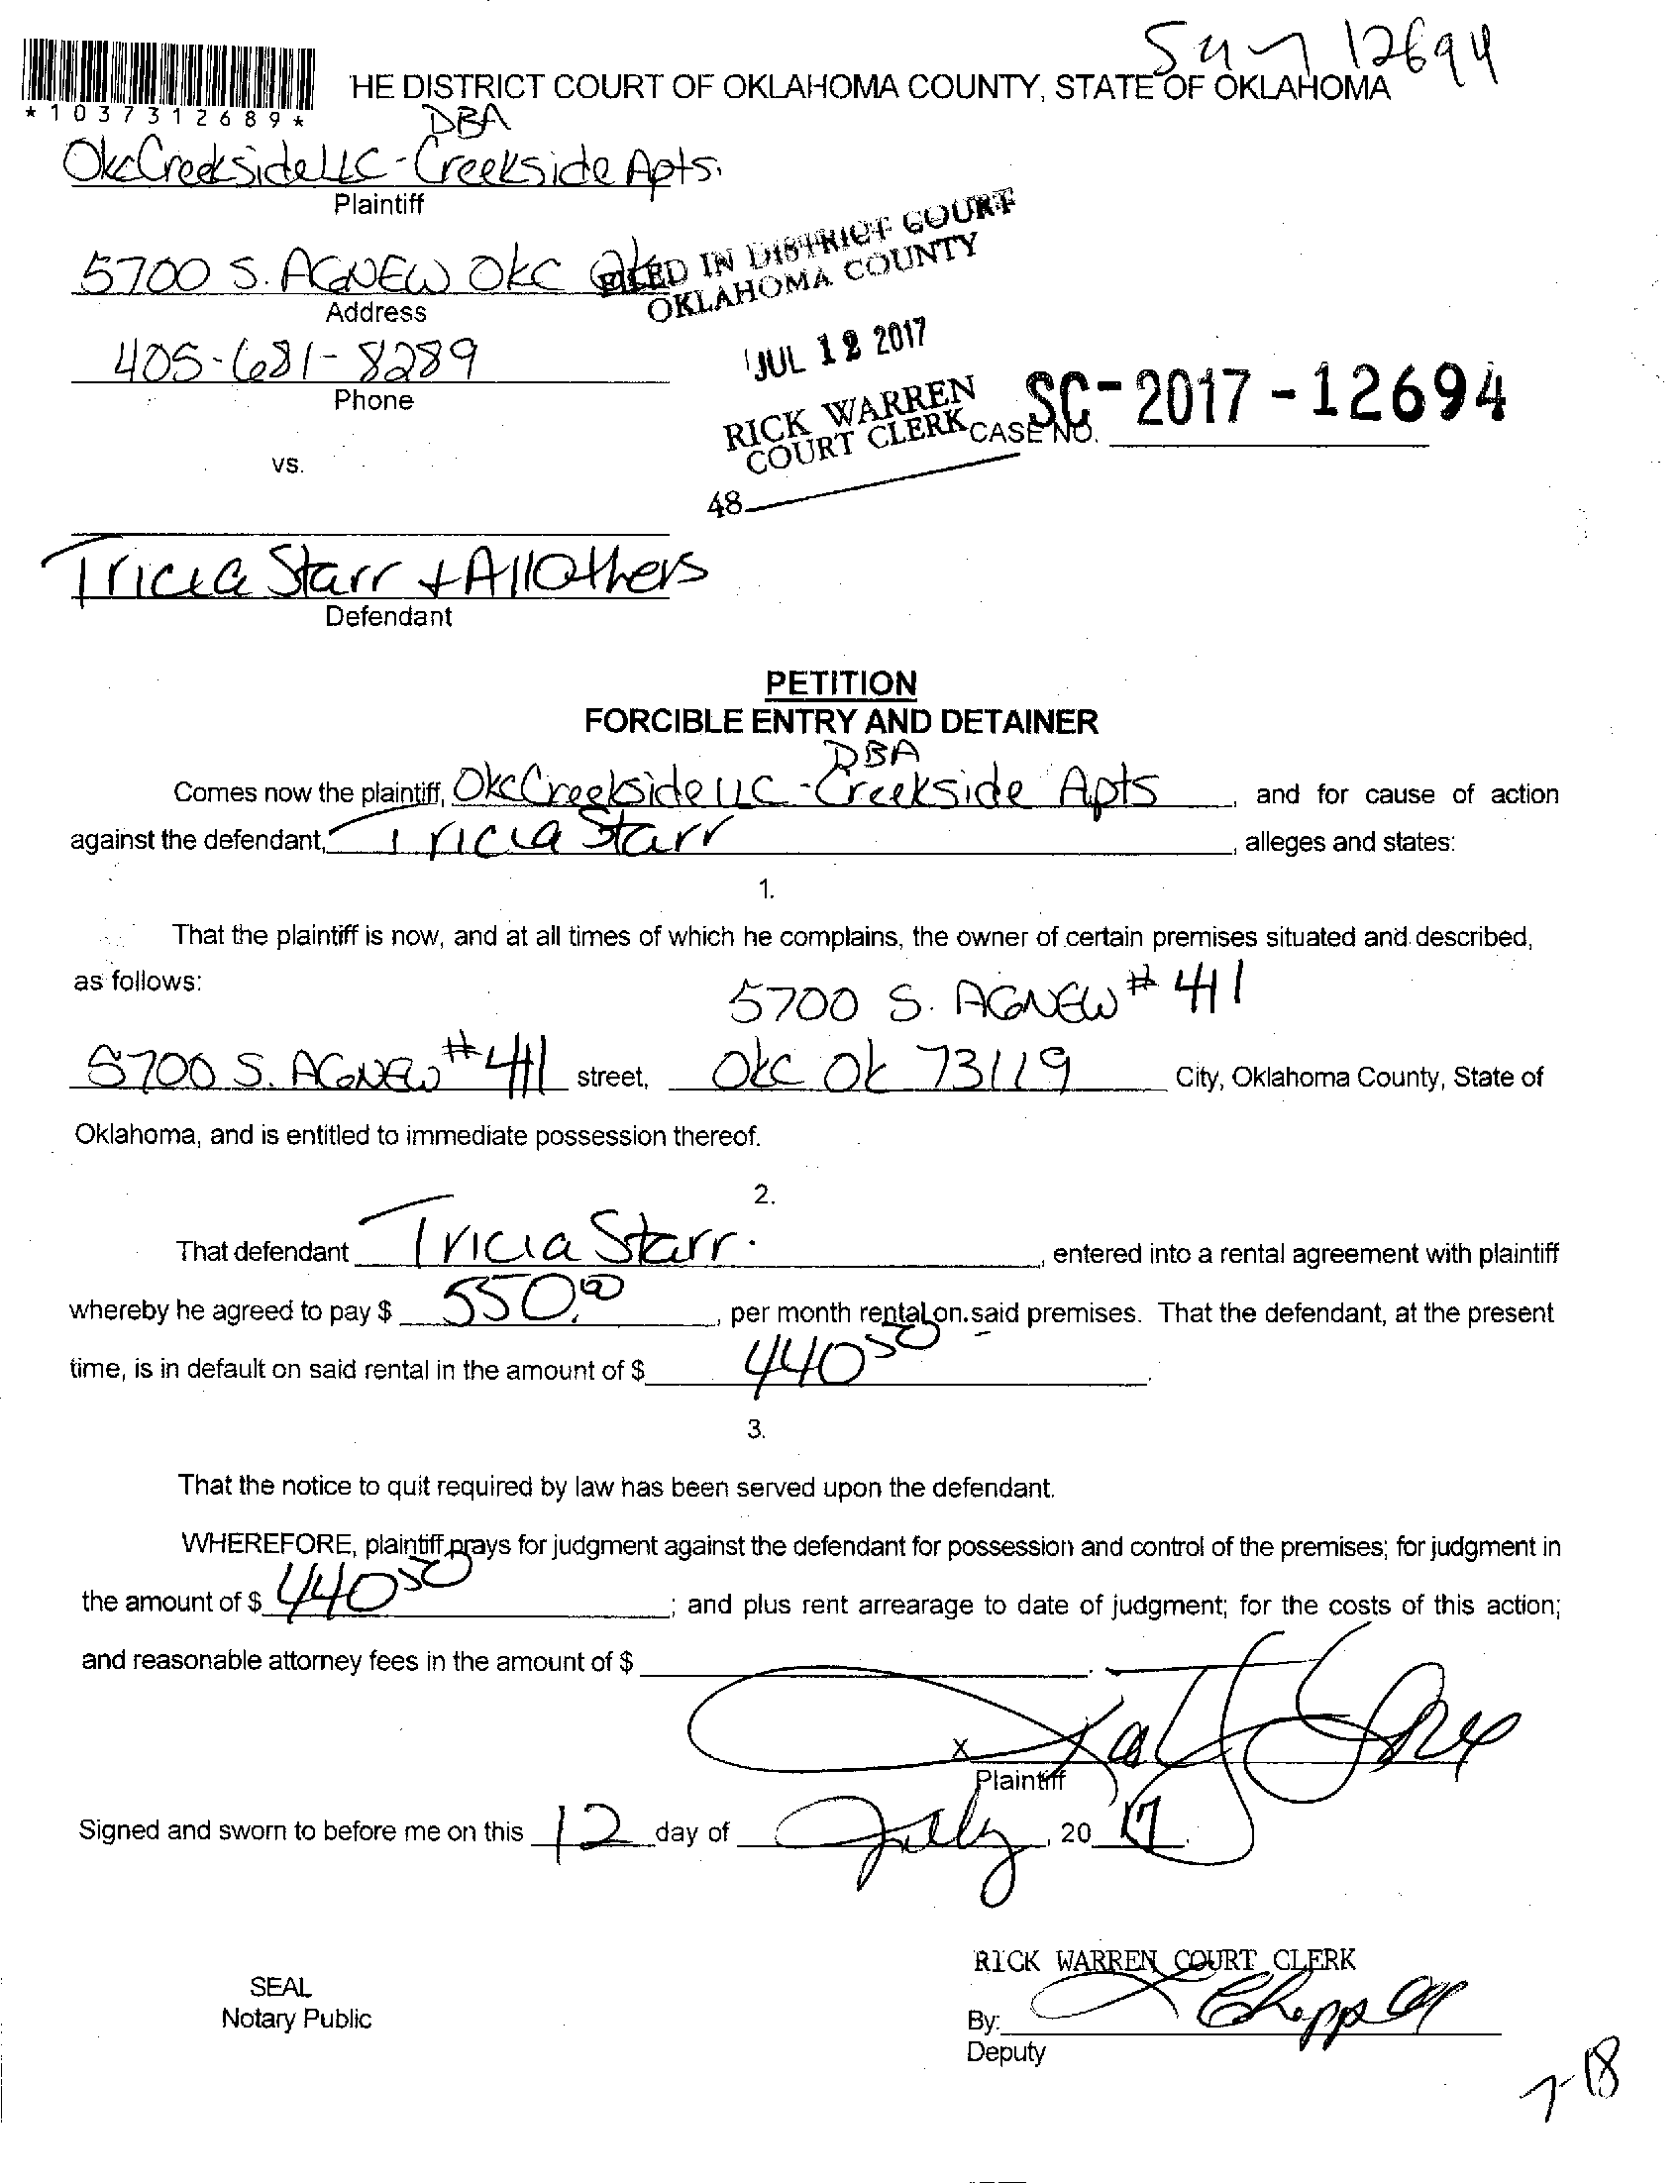 12694
HE DISTRICT COURT OF OKLAHOMA COUNTY, STATE OF OKLAHOMA
*1037312689*
DBA
OkcCreeksideLLC-Creekside Apts.
Plaintiff
5700 S. AGNEW OKC OK
Address
FILED IN DISTRICT COURT
OKLAHOMA COUNTY
405-681-8289
Phone
JUL 12 2017
RICK WARREN
COURT CLERK
CASE NO. SC-2017-12694
vs.
48
Tricia Starr + All Others
Defendant
PETITION
FORCIBLE ENTRY AND DETAINER
DBA
Comes now the plaintiff, OkcCreekside LLC-Creekside Apts, and for cause of action
against the defendant, Tricia Starr, alleges and states:
1.
That the plaintiff is now, and at all times of which he complains, the owner of certain premises situated and described,
as follows:
5700 S. AGNEW # 411
5700 S. AGNEW #411 street, OKC OK 73119 City, Oklahoma County, State of
Oklahoma, and is entitled to immediate possession thereof.
2.
That defendant Tricia Starr., entered into a rental agreement with plaintiff
whereby he agreed to pay $ 550.00, per month rental on said premises. That the defendant, at the present
time, is in default on said rental in the amount of $ 440 50.
3.
That the notice to quit required by law has been served upon the defendant.
WHEREFORE, plaintiff prays for judgment against the defendant for possession and control of the premises; for judgment in
the amount of $ 440 50; and plus rent arrearage to date of judgment; for the costs of this action;
and reasonable attorney fees in the amount of $
X
Plaintiff
Signed and sworn to before me on this 12 day of July, 20 17.
RICK WARREN COURT CLERK
SEAL
Notary Public
By:
Deputy
7-18